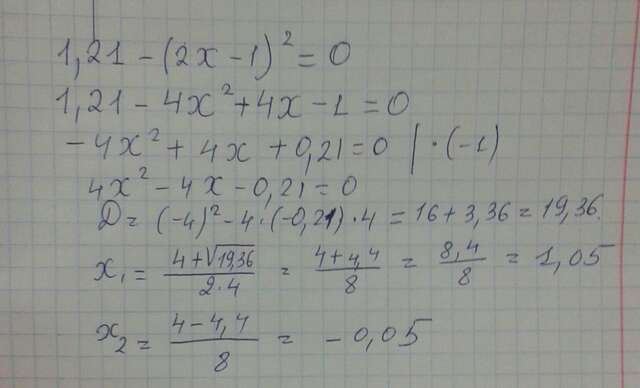 1,21 - (2x - 1)² = 0
1,21 - 4x² + 4x - 1 = 0
- 4x² + 4x + 0,21 = 0 | · (-1)
4x² - 4x - 0,21 = 0
D = (-4)² - 4 · (-0,21) · 4 = 16 + 3,36 = 19,36.
x₁ = (4 + √19,36)/(2 · 4) = (4 + 4,4)/8 = 8,4/8 = 1,05
x₂ = (4 - 4,4)/8 = - 0,05